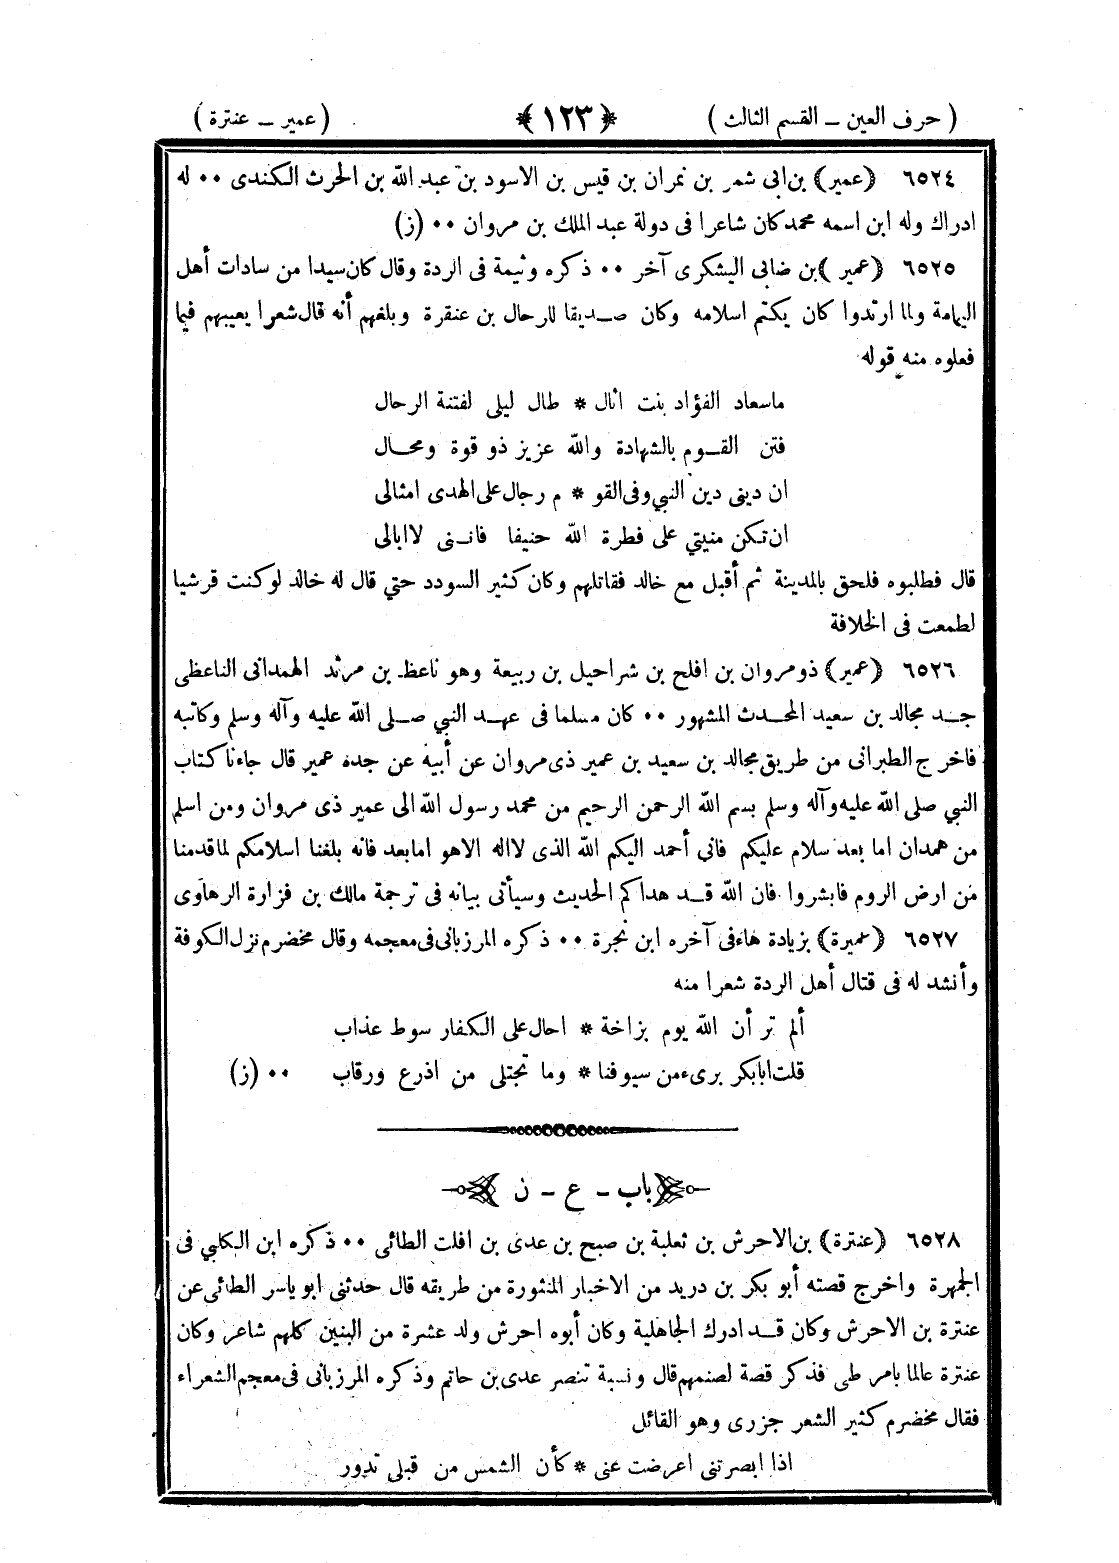 ( حرف العين ــ القسم الثالث ) ﴿ ١٢٣ ﴾ ( عمير ــ عنترة )
٦٥٢٤ ﴿عمير﴾ بن ابى شمر بن نمران بن قيس بن الاسود بن عبد الله بن الحرث الكندى ٠٠ له
ادراك وله ابن اسمه محمد كان شاعرا فى دولة عبد الملك بن مروان ٠٠ (ز)
٦٥٢٥ ﴿عمير﴾ بن ضابى اليشكرى آخر ٠٠ ذكره وثيمة فى الردة وقال كان سيدا من سادات أهل
اليمامة ولما ارتدوا كان يكتم اسلامه وكان صديقا للرحال بن عنقرة وبلغهم أنه قال شعرا يعيبهم فيما
فعلوه منه قوله
ماسعاد الفؤاد بنت اثال * طال ليلى لفتنة الرحال
فتن القوم بالشهادة والله عزيز ذو قوة ومحال
ان دينى دين النبي وفى القو * م رجال على الهدى امثالى
ان تكن منيتي على فطرة الله حنيفا فانى لاابالى
قال فطلبوه فلحق بالمدينة ثم أقبل مع خالد فقاتلهم وكان كثير السودد حتي قال له خالد لو كنت قرشيا
لطمعت فى الخلافة
٦٥٢٦ ﴿عمير﴾ ذو مروان بن افلح بن شراحيل بن ربيعة وهو ناعظ بن مرثد الهمدانى الناعظى
جد مجالد بن سعيد المحدث المشهور ٠٠ كان مسلما فى عهد النبي صلى الله عليه وآله وسلم وكاتبه
فاخرج الطبرانى من طريق مجالد بن سعيد بن عمير ذى مروان عن أبيه عن جده عمير قال جاءنا كتاب
النبي صلى الله عليه وآله وسلم بسم الله الرحمن الرحيم من محمد رسول الله الى عمير ذى مروان ومن اسلم
من همدان اما بعد سلام عليكم فانى أحمد اليكم الله الذى لااله الاهو امابعد فانه بلغنا اسلامكم لما قدمنا
من ارض الروم فابشروا فان الله قد هداكم الحديث وسيأتى بيانه فى ترجمة مالك بن فزارة الرهاوى
٦٥٢٧ ﴿عميرة﴾ بزيادة هاء فى آخره ابن نجرة ٠٠ ذكره المرزبانى فى معجمه وقال مخضرم نزل الكوفة
وأنشد له فى قتال أهل الردة شعرا منه
ألم تر أن الله يوم بزاخة * احال على الكفار سوط عذاب
قلت ابابكر برىء من سيوفنا * وما تجتلى من اذرع ورقاب ٠٠ (ز)
باب ـ ع ـ ن
٦٥٢٨ ﴿عنترة﴾ بن الاحرش بن ثعلبة بن صبح بن عدى بن افلت الطائى ٠٠ ذكره ابن الكلبي فى
الجمهرة واخرج قصته أبو بكر بن دريد من الاخبار المنثورة من طريقه قال حدثنى ابو ياسر الطائى عن
عنترة بن الاحرش وكان قد ادرك الجاهلية وكان أبوه احرش ولد عشرة من البنين كلهم شاعر وكان
عنترة عالما بامر طى فذكر قصة لصنمهم قال ونسبة تنصر عدى بن حاتم وذكره المرزبانى فى معجم الشعراء
فقال مخضرم كثير الشعر جزرى وهو القائل
اذا ابصرتنى اعرضت عنى * كأن الشمس من قبلى تدور